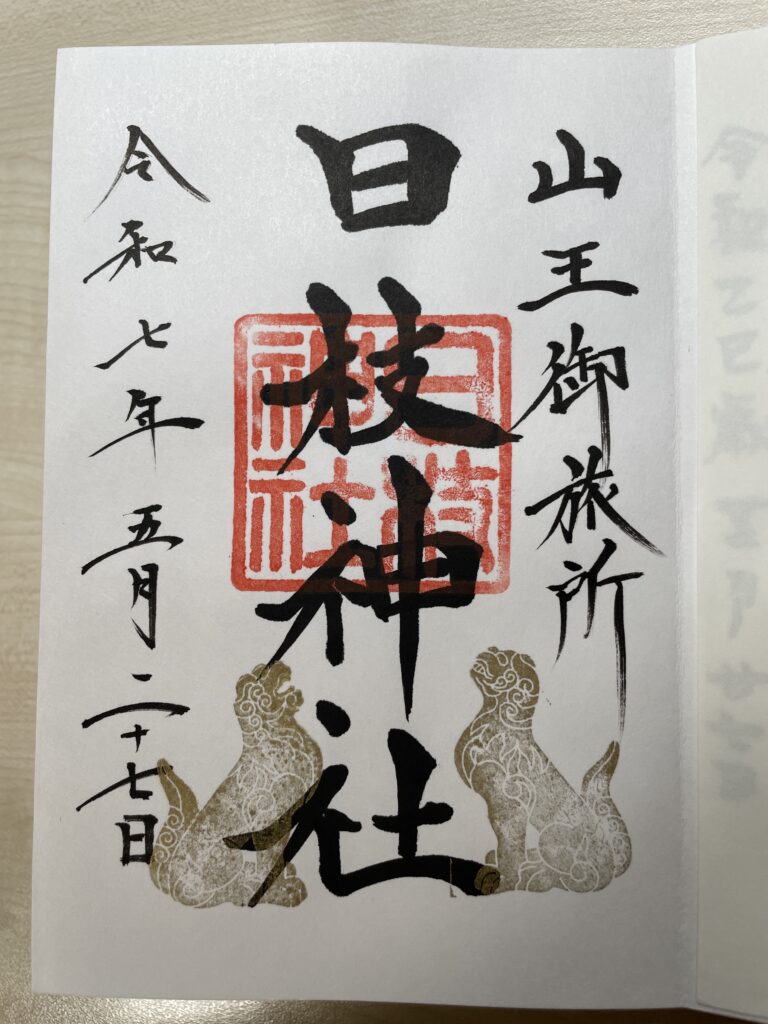 山王御旅所
日枝神社
日枝
神社
令和七年五月二十七日